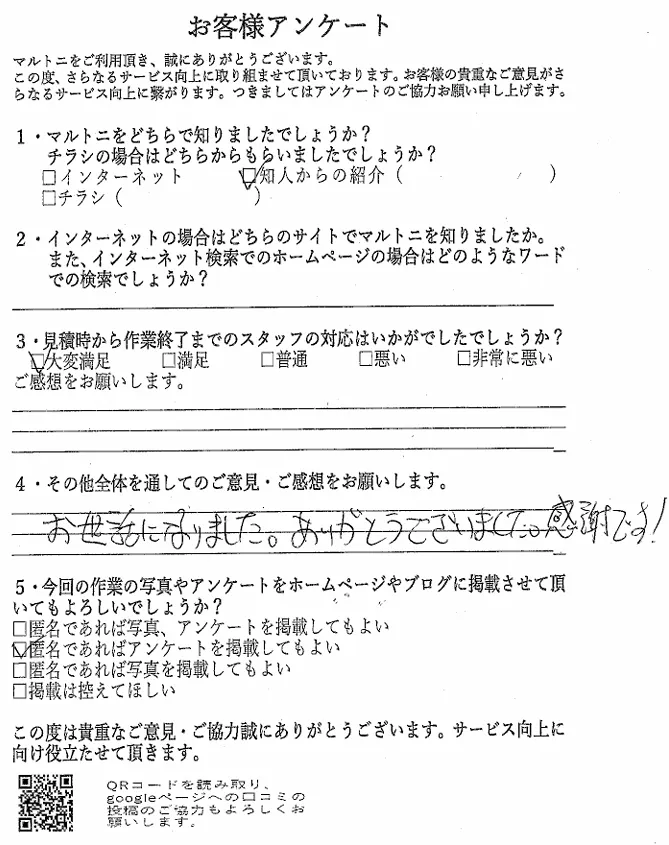 お客様アンケート
マルトニをご利用頂き、誠にありがとうございます。
この度、さらなるサービス向上に取り組ませて頂いております。お客様の貴重なご意見がさ
らなるサービス向上に繋がります。つきましてはアンケートのご協力お願い申し上げます。
1・マルトニをどちらで知りましたでしょうか?
チラシの場合はどちらからもらいましたでしょうか?
□インターネット ☑知人からの紹介( )
□チラシ( )
2・インターネットの場合はどちらのサイトでマルトニを知りましたか。
また、インターネット検索でのホームページの場合はどのようなワード
での検索でしょうか?
3・見積時から作業終了までのスタッフの対応はいかがでしたでしょうか?
☑大変満足 □満足 □普通 □悪い □非常に悪い
ご感想をお願いします。
4・その他全体を通してのご意見・ご感想をお願いします。
お世話になりました。ありがとうございました。感謝です!
5・今回の作業の写真やアンケートをホームページやブログに掲載させて頂
いてもよろしいでしょうか?
□匿名であれば写真、アンケートを掲載してもよい
☑匿名であればアンケートを掲載してもよい
□匿名であれば写真を掲載してもよい
□掲載は控えてほしい
この度は貴重なご意見・ご協力誠にありがとうございます。サービス向上に
向け役立たせて頂きます。
QRコードを読み取り、
googleページへの口コミの
投稿のご協力もよろしくお
願いします。